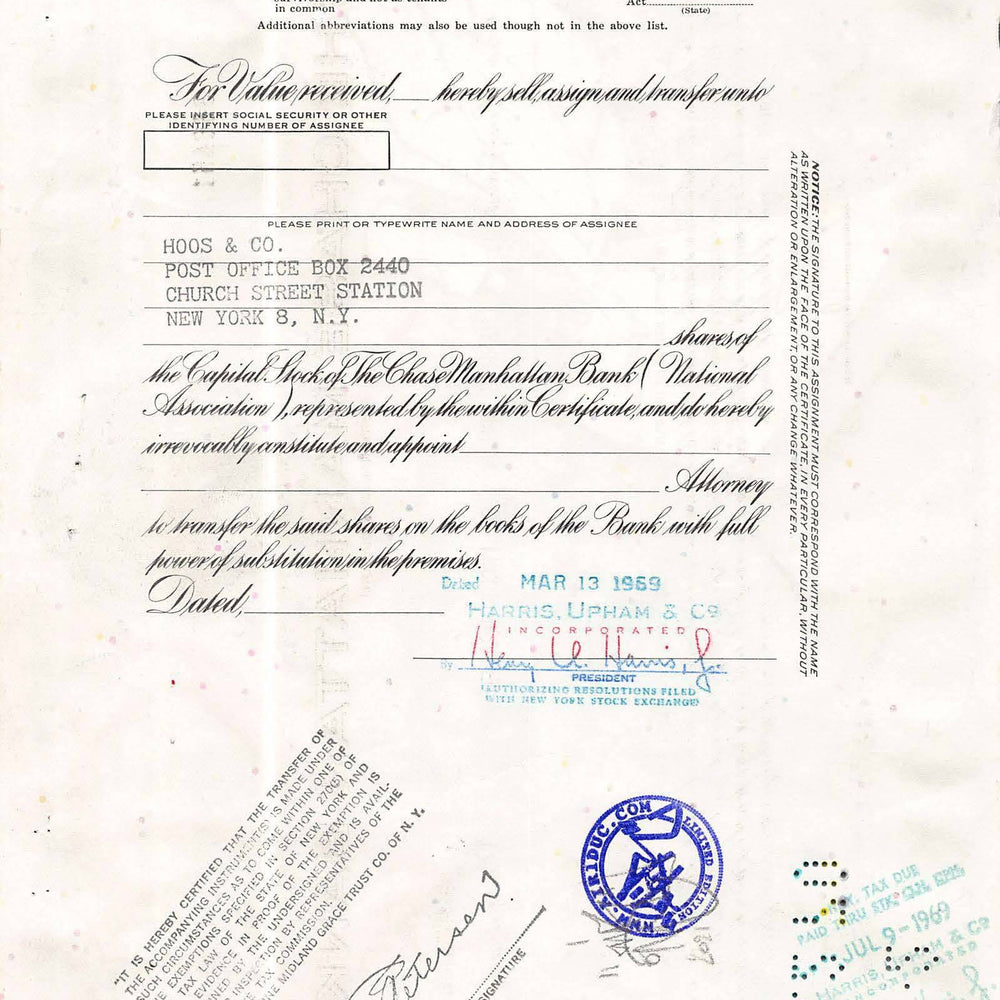 in common
Act
(State)
Additional abbreviations may also be used though not in the above list.
For Value received, hereby sell, assign and transfer unto
PLEASE INSERT SOCIAL SECURITY OR OTHER
IDENTIFYING NUMBER OF ASSIGNEE
PLEASE PRINT OR TYPEWRITE NAME AND ADDRESS OF ASSIGNEE
HOOS & CO.
POST OFFICE BOX 2440
CHURCH STREET STATION
NEW YORK 8, N.Y.
shares of
the Capital Stock of The Chase Manhattan Bank (National
Association), represented by the within Certificate, and do hereby
irrevocably constitute and appoint
Attorney
to transfer the said shares on the books of the Bank with full
power of substitution in the premises.
Dated,
Dated MAR 13 1969
HARRIS, UPHAM & CO
INCORPORATED
By Henry U. Harris, Jr.
PRESIDENT
(AUTHORIZING RESOLUTIONS FILED
WITH NEW YORK STOCK EXCHANGE)
NOTICE: THE SIGNATURE TO THIS ASSIGNMENT MUST CORRESPOND WITH THE NAME
AS WRITTEN UPON THE FACE OF THE CERTIFICATE, IN EVERY PARTICULAR, WITHOUT
ALTERATION OR ENLARGEMENT, OR ANY CHANGE WHATEVER.
"IT IS HEREBY CERTIFIED THAT THE TRANSFER OF
THE ACCOMPANYING INSTRUMENT(S) IS MADE UNDER
SUCH CIRCUMSTANCES AS TO COME WITHIN ONE OF
THE EXEMPTIONS SPECIFIED IN SECTION 270(5) OF
TAX LAW OF THE STATE OF NEW YORK AND
EVIDENCE IN PROOF OF THE EXEMPTION IS
BY THE UNDERSIGNED AND IS AVAIL-
INSPECTION BY REPRESENTATIVES OF THE
TAX COMMISSION.
MIDLAND GRACE TRUST CO. OF N. Y.
Peterson
SIGNATURE
WWW.AIRIDUC.COM
LIMITED EDITION
TAX DUE
PAID THRU STK. CLR. CORP.
JUL 9 - 1969
HARRIS, UPHAM & CO
INCORPORATED